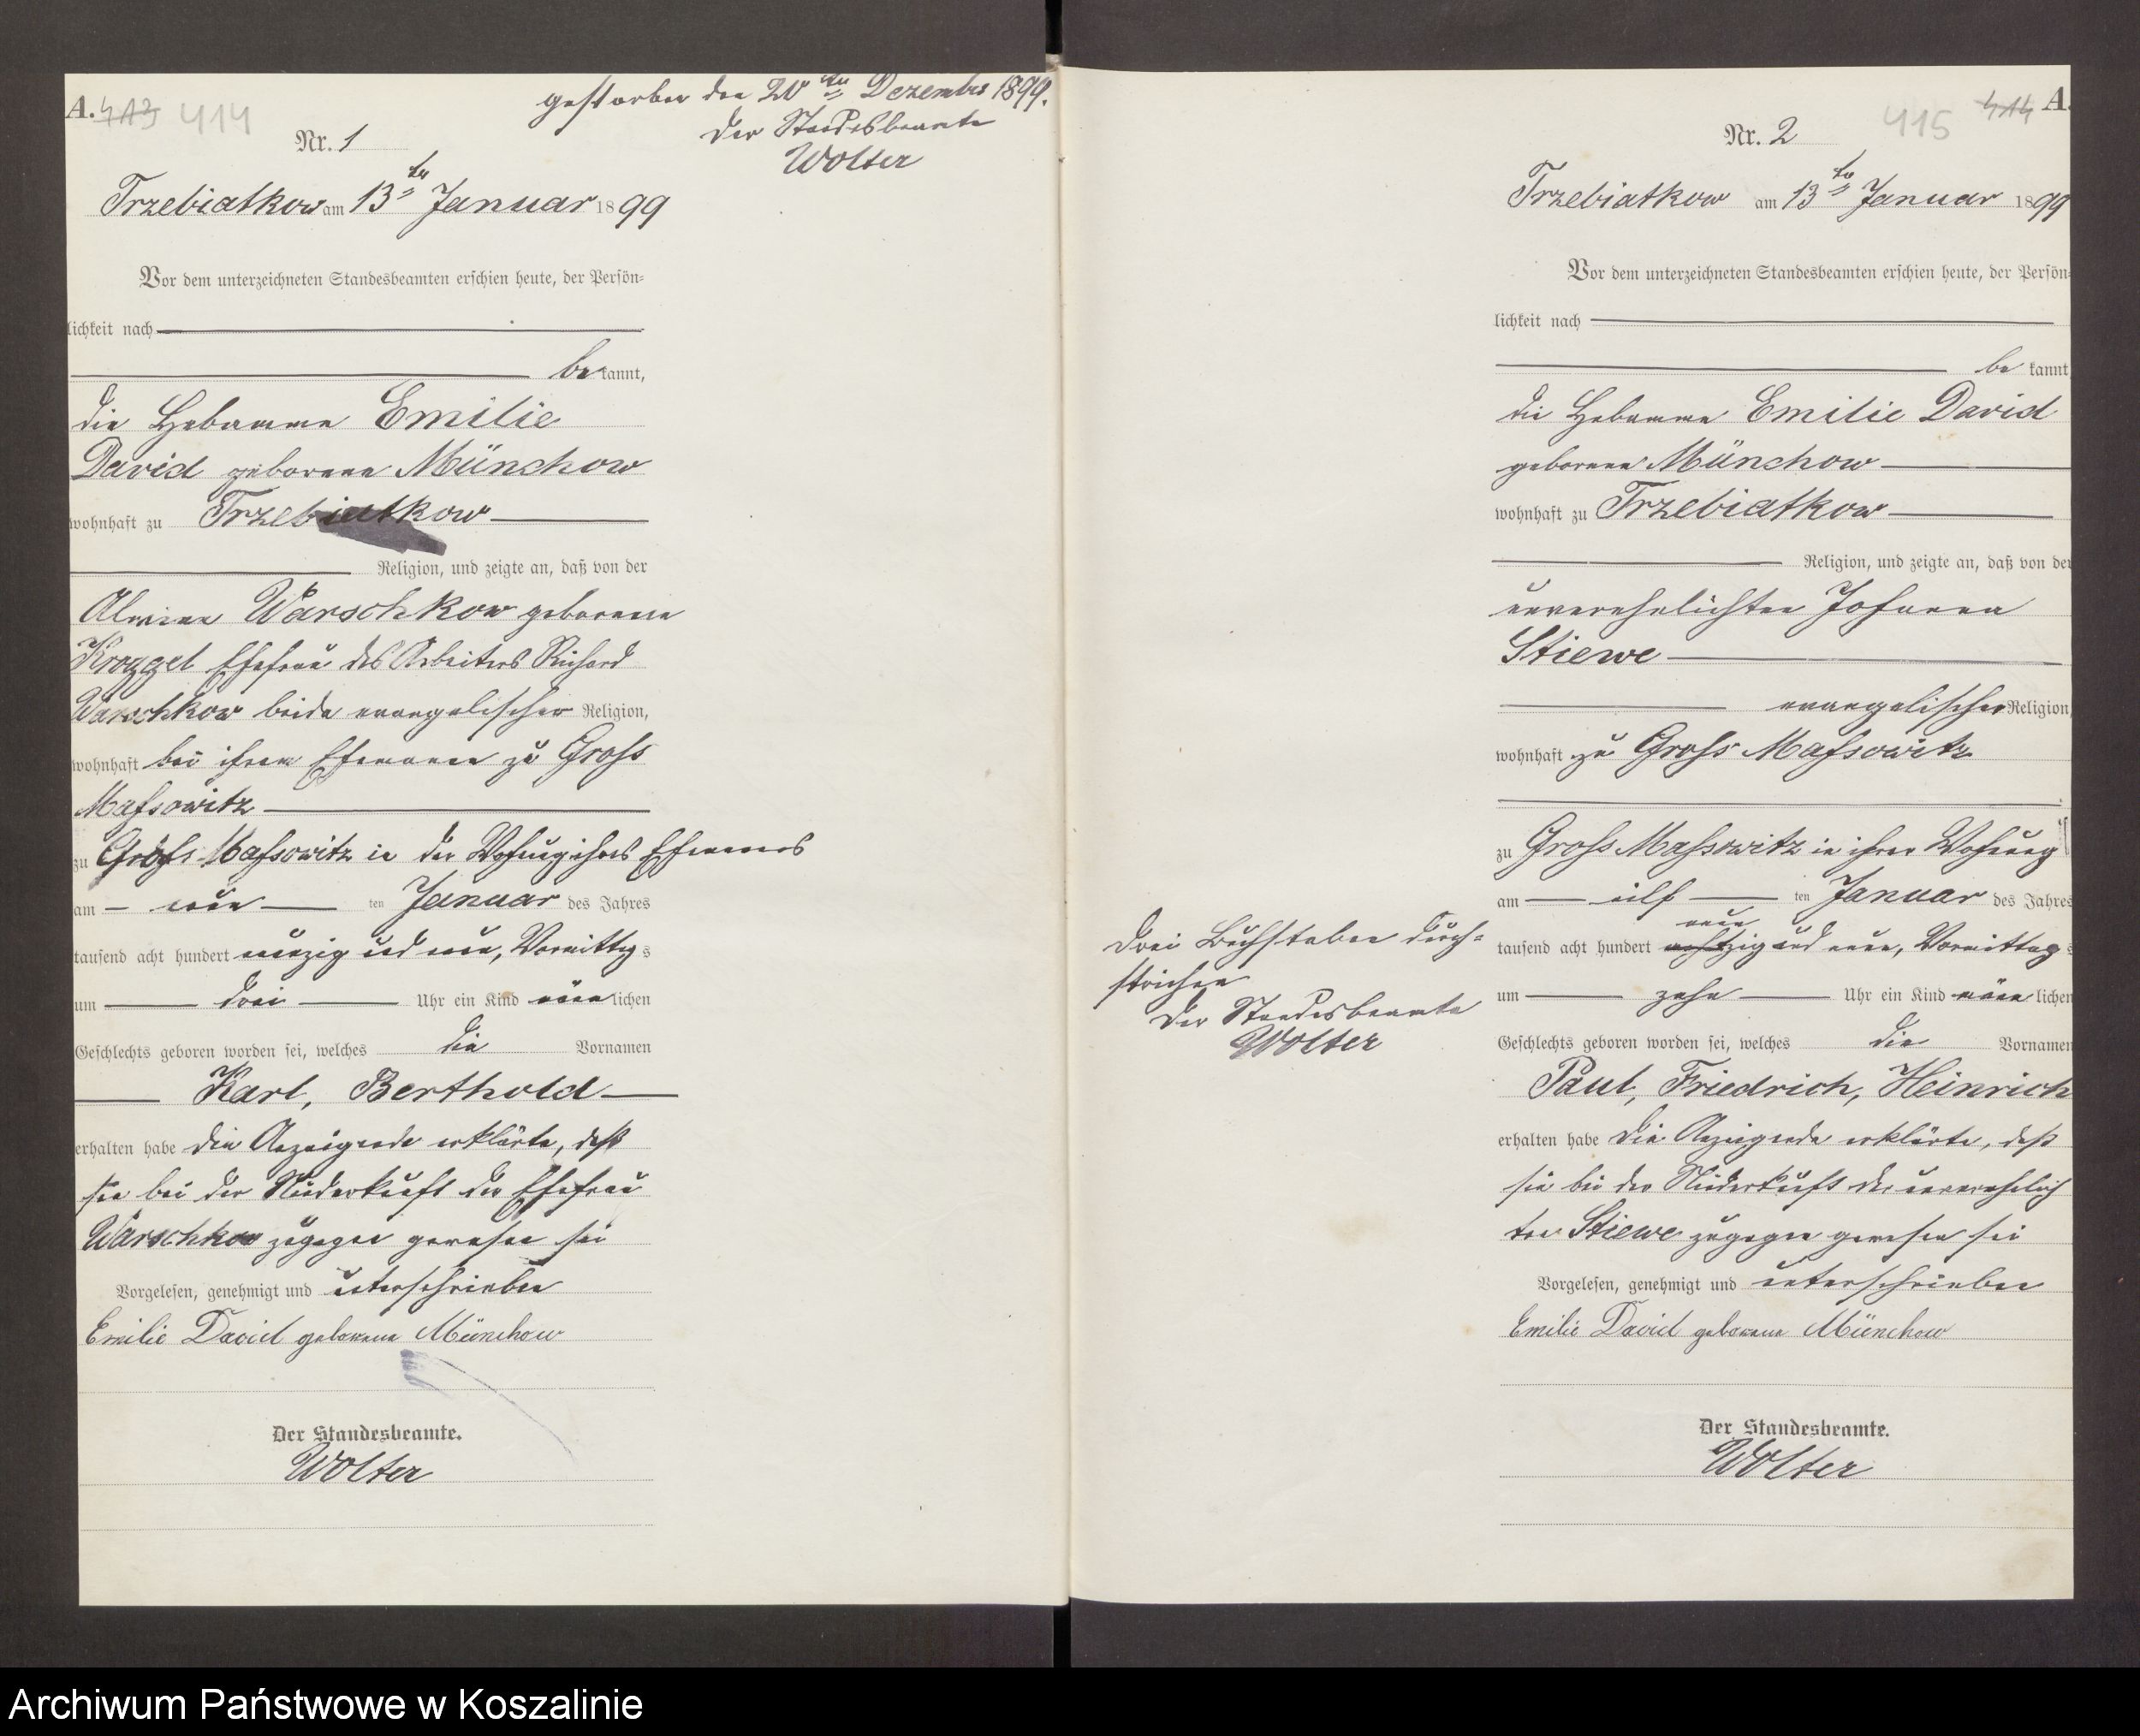 A. 413 414
gestorben den 20ten Dezember 1899.
Der Standesbeamte
Wolter
Nr. 1
Trzebiatkow am 13ten Januar 1899
Vor dem unterzeichneten Standesbeamten erschien heute, der Persön-
lichkeit nach
be kannt,
die Hebamme Emilie
David geborene Münchow
wohnhaft zu Trzebiatkow
Religion, und zeigte an, daß von der
Warschkow geborene
Kroggel Ehefrau des Arbeiters Richard
Warschkow beide evangelischer Religion,
wohnhaft bei ihrem Ehemanne zu Gross
Massowitz
zu Gross Massowitz in der Wohnung ihres Ehemannes
am neun ten Januar des Jahres
tausend acht hundert neunzig und neun, Vormittags
um drei Uhr ein Kind männlichen
Geschlechts geboren worden sei, welches die Vornamen
Karl, Berthold
erhalten habe Die Anzeigende erklärte, daß
sie bei der Niederkunft der Ehefrau
Warschkow zugegen gewesen sei
Vorgelesen, genehmigt und unterschrieben
Emilie David geborene Münchow
Der Standesbeamte.
Wolter
415 414 A.
Nr. 2
Trzebiatkow am 13ten Januar 1899
Vor dem unterzeichneten Standesbeamten erschien heute, der Persön-
lichkeit nach
be kannt
die Hebamme Emilie David
geborene Münchow
wohnhaft zu Trzebiatkow
Religion, und zeigte an, daß von der
unverehelichten Johanna
Stiewe
evangelischer Religion,
wohnhaft zu Gross Massowitz
zu Gross Massowitz in ihrer Wohnung
am eilf ten Januar des Jahres
neun
tausend acht hundert achtzig und neun, Vormittags
um zehn Uhr ein Kind männlichen
Geschlechts geboren worden sei, welches die Vornamen
Paul, Friedrich, Heinrich
erhalten habe Die Anzeigende erklärte, daß
sie bei der Niederkunft der unverehelich
ten Stiewe zugegen gewesen sei
Vorgelesen, genehmigt und unterschrieben
Emilie David geborene Münchow
Der Standesbeamte.
Wolter
Drei Buchstaben durch-
strichen
Der Standesbeamte
Wolter
Archiwum Państwowe w Koszalinie